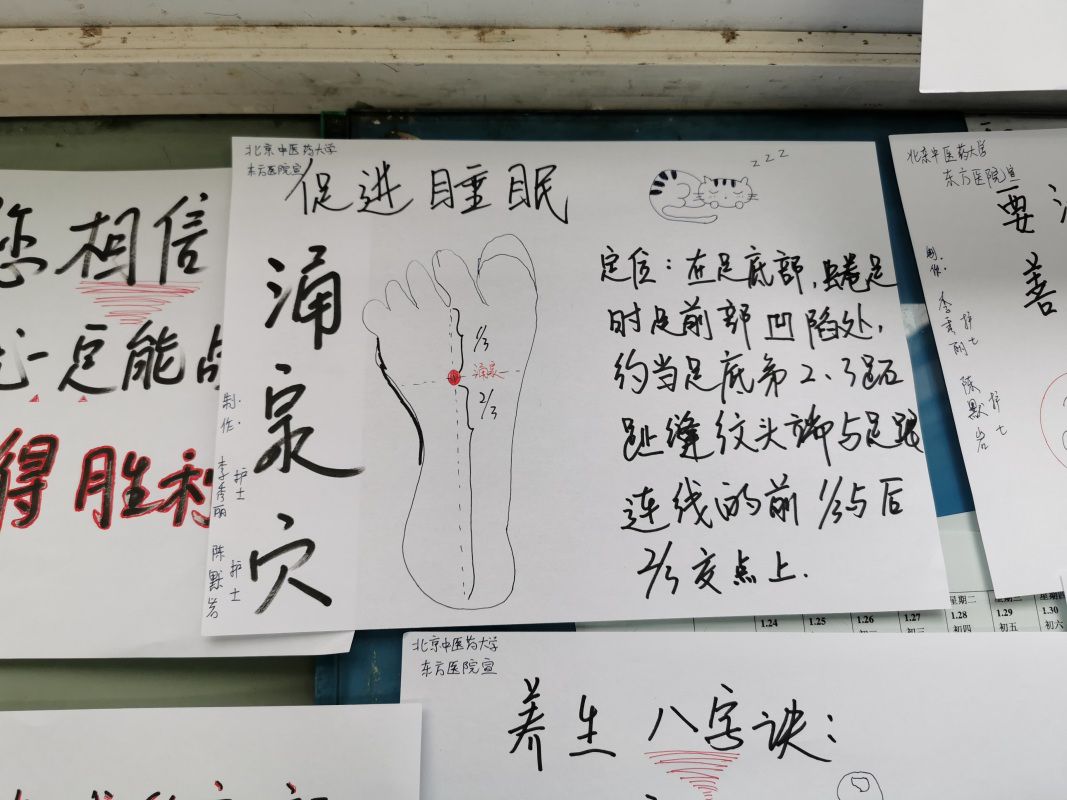 北京中医药大学
东方医院宣
促进睡眠
zzz
涌泉穴
制作:
李秀丽 护士
陈默岩 护士
1/3
涌泉
2/3
定位:在足底部,蜷足
时足前部凹陷处,
约当足底第2、3跖
趾缝纹头端与足跟
连线的前1/3与后
2/3交点上.
您相信
一定能战
得胜利
北京中医药大学
东方医院宣
要
善
制作:
护士
陈默岩 护士
星期二
星期三
星期四
1.24
1.25
1.26
1.27
1.28
1.29
1.30
初四
初五
初六
北京中医药大学
东方医院宣
养生八字诀: